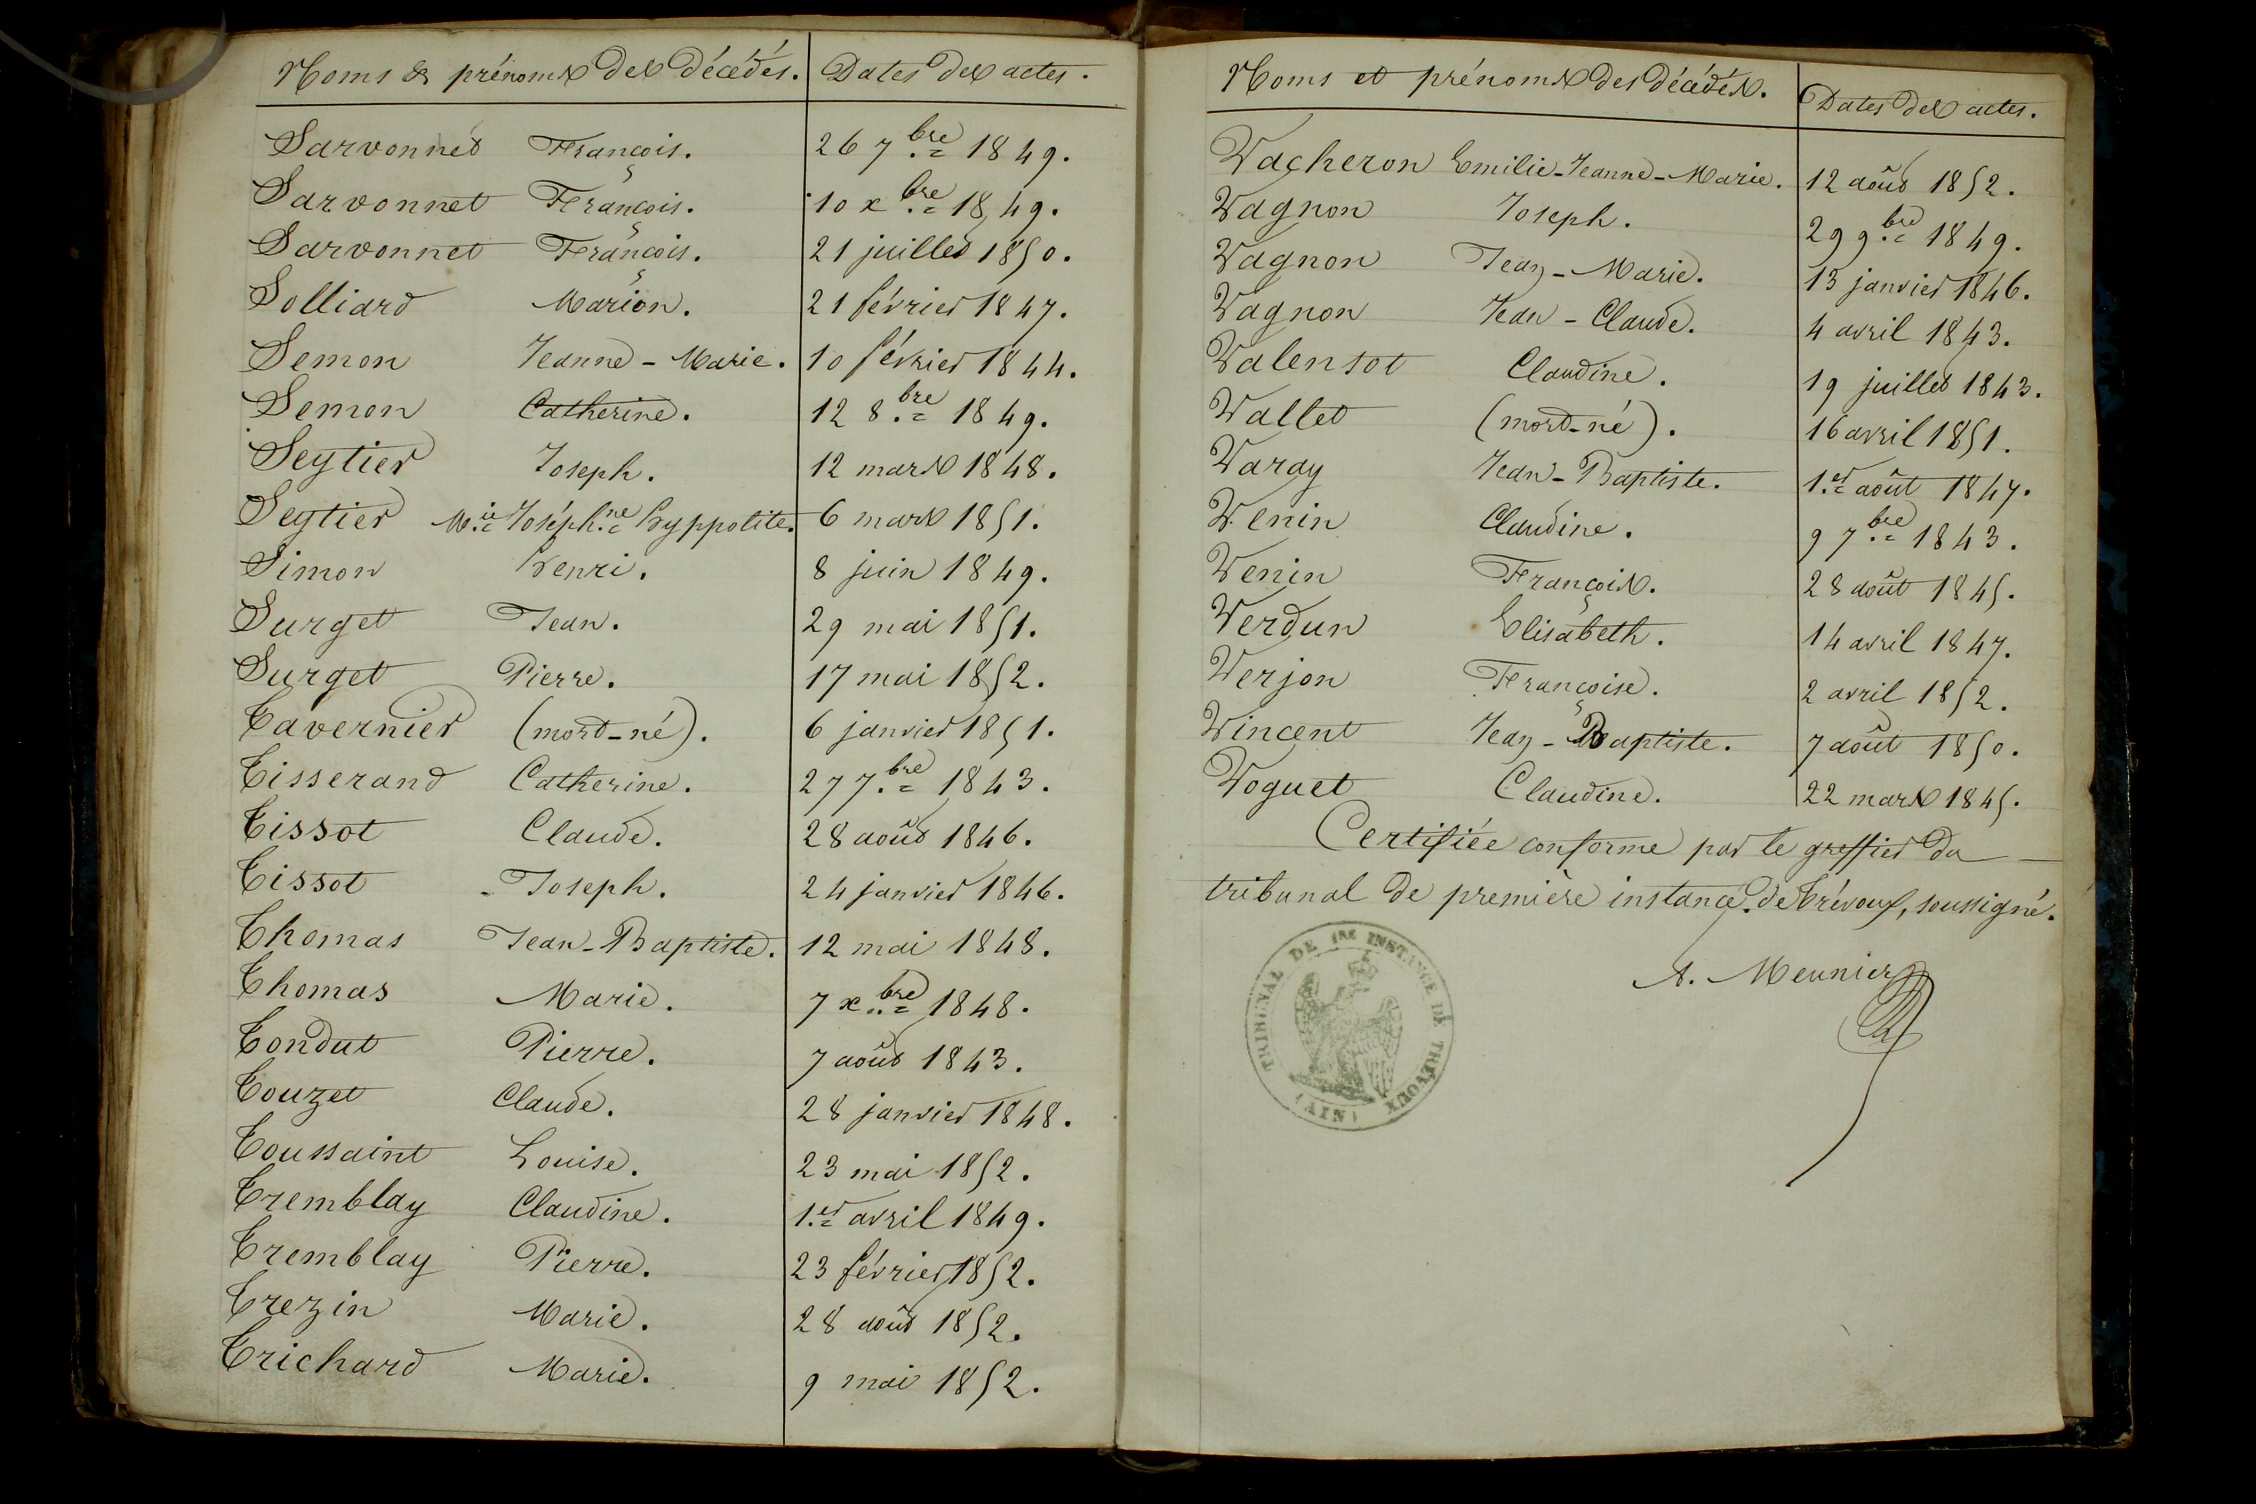 Noms & prénoms des décédés. Dates des actes.
Sarvonnet François. 26 7.bre 1849.
Sarvonnet François. 10 x.bre 1849.
Sarvonnet François. 21 juillet 1850.
Solliard Marion. 21 février 1847.
Semon Jeanne-Marie. 10 février 1844.
Semon Catherine. 12 8.bre 1849.
Seytier Joseph. 12 mars 1848.
Seytier M.ie Joséph.ne hyppolite. 6 mars 1851.
Simon henri. 8 juin 1849.
Surget Jean. 29 mai 1851.
Surget Pierre. 17 mai 1852.
Tavernier (mort-né). 6 janvier 1851.
Tisserand Catherine. 27 7.bre 1843.
Tissot Claude. 28 août 1846.
Tissot Joseph. 24 janvier 1846.
Thomas Jean-Baptiste. 12 mai 1848.
Thomas Marie. 7 x.bre 1848.
Tondut Pierre. 7 août 1843.
Touzet Claude. 28 janvier 1848.
Toussaint Louise. 23 mai 1852.
Tremblay Claudine. 1.er avril 1849.
Tremblay Pierre. 23 février 1852.
Trezin Marie. 28 août 1852.
Trichard Marie. 9 mai 1852.
Noms et prénoms des décédés. Dates des actes.
Vacheron Emilie-Jeanne-Marie. 12 août 1852.
Vagnon Joseph. 29 9.bre 1849.
Vagnon Jean-Marie. 13 janvier 1846.
Vagnon Jean-Claude. 4 avril 1843.
Valensot Claudine. 19 juillet 1843.
Vallet (mort-né). 16 avril 1851.
Varay Jean-Baptiste. 1.er août 1847.
Venin Claudine. 9 7.bre 1843.
Venin François. 28 août 1845.
Verdun Elisabeth. 14 avril 1847.
Verjon Françoise. 2 avril 1852.
Vincent Jean-Baptiste. 7 août 1850.
Voguet Claudine. 22 mars 1845.
Certifiée conforme par le greffier du
tribunal de première instance de Trévoux, soussigné.
A. Meunier
TRIBUNAL DE 1RE INSTANCE DE TRÉVOUX (AIN)